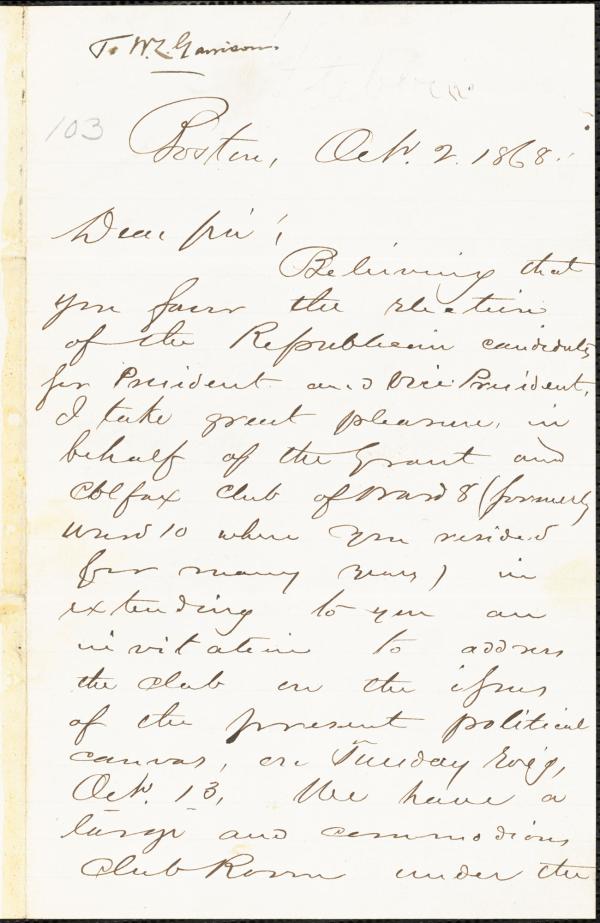 To W.L. Garrison.
103
Boston, Oct. 2. 1868.
Dear Sir!
Believing that
you favor the election
of the Republican candidates
for President and Vice-President,
I take great pleasure, in
behalf of the Grant and
Colfax Club of Ward 8 (formerly
Ward 10 where you resided
for many years) in
extending to you an
invitation to address
the Club on the issues
of the present political
canvas, on Tuesday Eve'g,
Oct. 13. We have a
large and commodious
Club Room under the